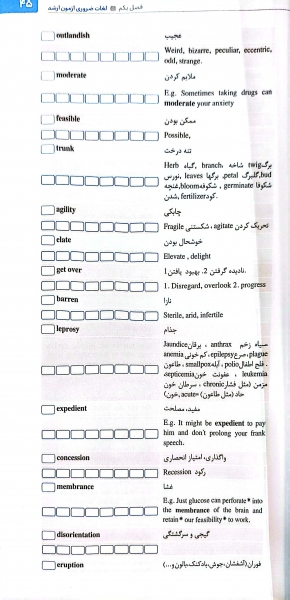 ۴۵ لغات ضروری آزمون ارشد فصل یکم
outlandish عجیب
Weird, bizarre, peculiar, eccentric,
odd, strange.
moderate ملایم کردن
E.g. Sometimes taking drugs can
moderate your anxiety
feasible ممکن بودن
Possible,
trunk تنه درخت
Herb گیاه, branch شاخه, twig برگ
bud, گلبرگ petal, برگها leaves, نورس
غنچه, bloom شکوفه, germinate شکوفا
شدن, fertilizer کود.
agility چابکی
Fragile شکستنی, agitate تحریک کردن
elate خوشحال بودن
Elevate , delight
get over 1.نادیده گرفتن 2. بهبود یافتن
1. Disregard, overlook 2. progress
barren نازا
Sterile, arid, infertile
leprosy جذام
Jaundice یرقان, anthrax سیاه زخم
anemia کم خونی, epilepsy صرع, plague
طاعون, smallpox آبله, polio فلج اطفال
septicemia عفونت خون, leukemia
سرطان خون, chronic مزمن (مثل فشار
خون), acute= حاد (مثل طاعون)
expedient مفید، مصلحت
E.g. It might be expedient to pay
him and don't prolong your frank
speech.
concession واگذاری، امتیاز انحصاری
Recession رکود
membrance غشا
E.g. Just glucose can perforate* into
the membrance of the brain and
retain* our feasibility* to work.
disorientation گیجی و سرگشتگی
eruption فوران(آتشفشان،جوش،بادکنک،بالون و...)